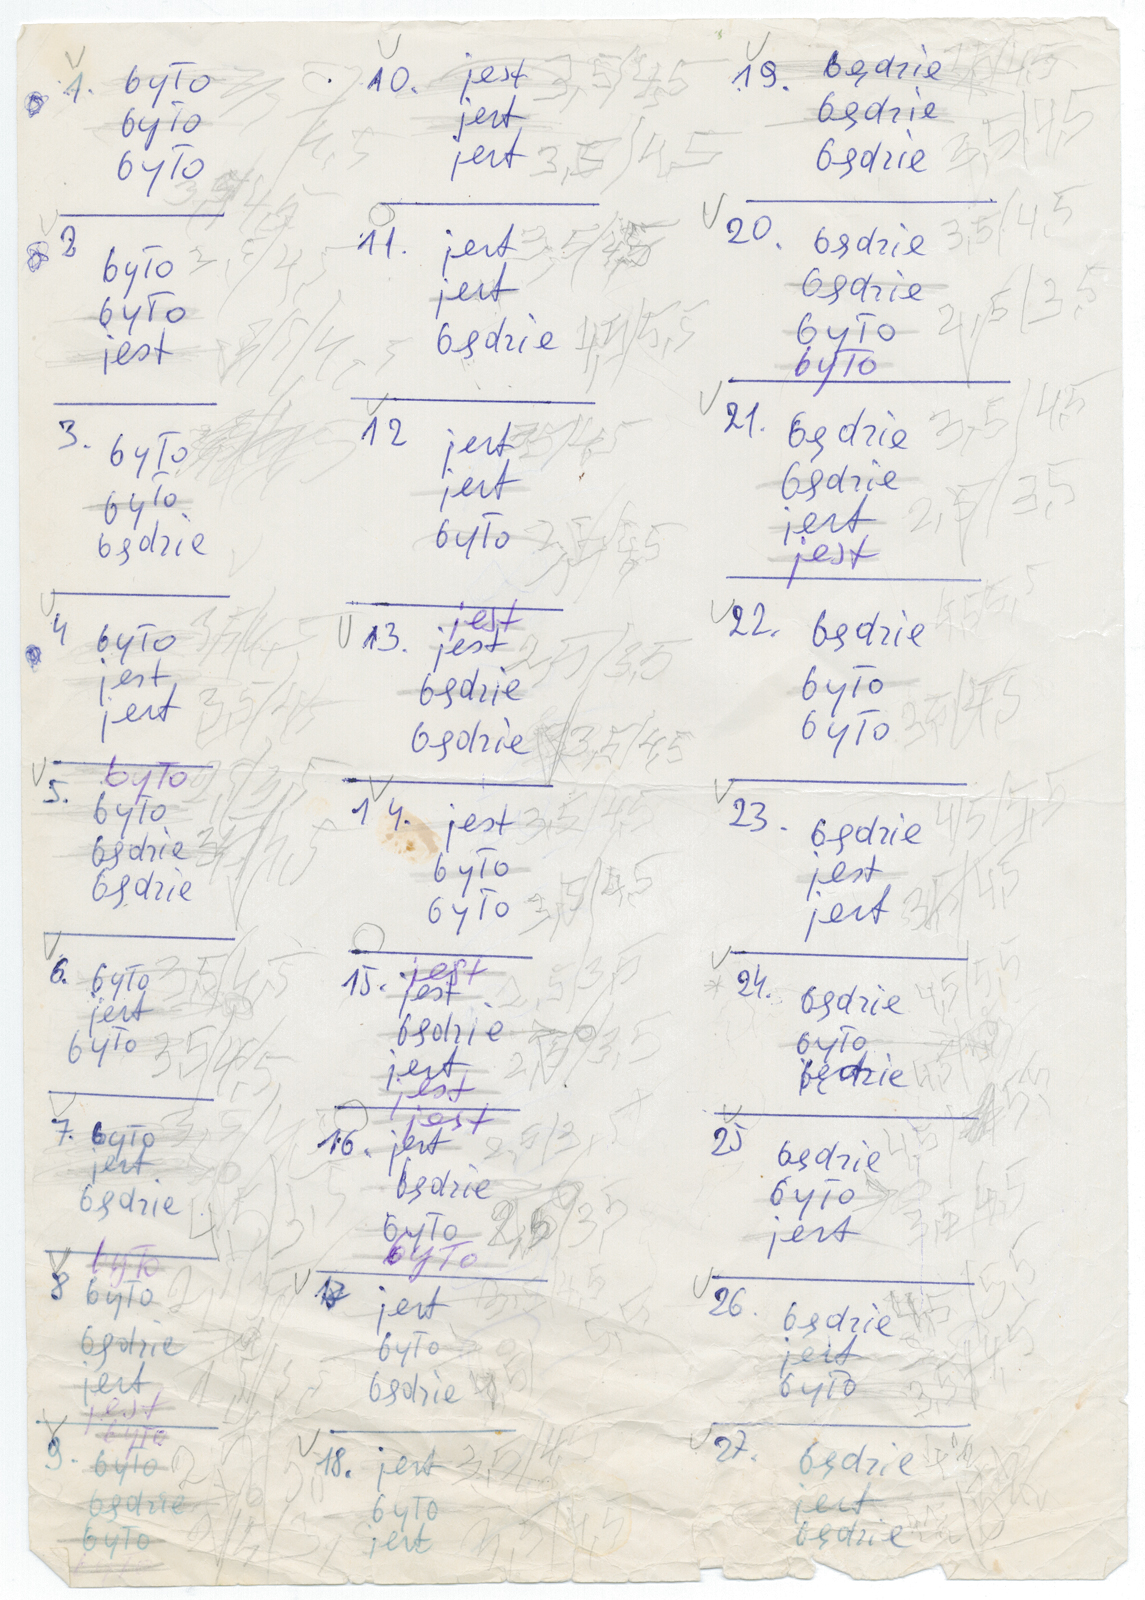 1. było
było
było
2 było
było
jest
3. było
było
będzie
4 było
jest
jest
było
5. było
będzie
będzie
6. było
jest
było
7. było
jest
będzie
było
8 było
będzie
jest
jest
było
9. było
będzie
było
10. jest 3,5/4,5
jest
jest 3,5/4,5
11. jest 3,5/4,5
jest
będzie 4,5/5,5
12 jest
jest
było
jest
13. jest 2,5/3,5
będzie
będzie 3,5/4,5
14. jest 3,5/4,5
było
było 3,5/4,5
jest
15. jest 2,5/3,5
będzie
jest 2,5/3,5
jest
jest
16. jest 2,5/3,5
będzie
było 2,5/3,5
było
17 jest
było
będzie
18. jest
było
jest
19. będzie
będzie
będzie 3,5/4,5
20. będzie 3,5/4,5
będzie
było 2,5/3,5
było
21. będzie 3,5/4,5
będzie
jest 2,5/3,5
jest
22. będzie
było
było 3,5/4,5
23. będzie 4,5/5,5
jest
jest 3,5/4,5
24. będzie 4,5/5,5
było
będzie
25 będzie
było
jest
26. będzie
jest
było
27. będzie
jest
będzie